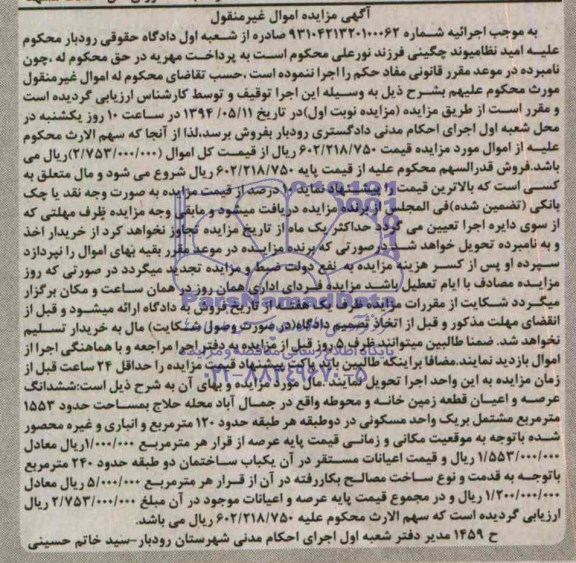 آگهی مزایده اموال غیرمنقول
به موجب اجرائیه شماره ۹۳۱۰۴۲۱۳۲۰۱۰۰۰۶۲ صادره از شعبه اول دادگاه حقوقی رودبار محکوم
علیه امید نظامیوند چگینی فرزند نورعلی محکوم است به پرداخت مهریه در حق محکوم له ،چون
نامبرده در موعد مقرر قانونی مفاد حکم را اجرا ننموده است ،حسب تقاضای محکوم له اموال غیرمنقول
مورث محکوم علیهم بشرح ذیل به وسیله این اجرا توقیف و توسط کارشناس ارزیابی گردیده است
و مقرر است از طریق مزایده (مزایده نوبت اول)در تاریخ ۱۳۹۴/۰۵/۱۱ در ساعت ۱۰ روز یکشنبه در
محل شعبه اول اجرای احکام مدنی دادگستری رودبار بفروش برسد،لذا از آنجا که سهم الارث محکوم
علیه از اموال مورد مزایده قیمت ۶۰۲/۲۱۸/۷۵۰ ریال از قیمت کل اموال (۲/۷۵۳/۰۰۰/۰۰۰)ریال می
باشد.فروش قدرالسهم محکوم علیه از قیمت پایه ۶۰۲/۲۱۸/۷۵۰ ریال شروع می شود و مال متعلق به
کسی است که بالاترین قیمت را پیشنهاد نماید ۱۰ درصد از قیمت مزایده به صورت وجه نقد یا چک
بانکی (تضمین شده)فی المجلس از برنده مزایده دریافت میشود و مابقی وجه مزایده ظرف مهلتی که
از سوی دایره اجرا تعیین می گردد حداکثر یک ماه از تاریخ مزایده تجاوز نخواهد کرد از خریدار اخذ
و به نامبرده تحویل خواهد شد درصورتی که برنده مزایده در موعد مقرر بقیه بهای اموال را نپردازد
سپرده او پس از کسر هزینه مزایده به نفع دولت ضبط و مزایده تجدید میگردد در صورتی که روز
مزایده مصادف با ایام تعطیل باشد مزایده فردای اداری همان روز در همان ساعت و مکان برگزار
میگردد شکایت از مقررات مزایده ظرف یک هفته از تاریخ فروش به دادگاه ارائه میشود و قبل از
انقضای مهلت مذکور و قبل از اتخاذ تصمیم دادگاه(در صورت وصول شکایت) مال به خریدار تسلیم
نخواهد شد. ضمنا طالبین میتوانند ظرف ۵ روز قبل از مزایده به دفتر اجرا مراجعه و با هماهنگی اجرا از
اموال بازدید نمایند.مضافا براینکه طالبین باید پاکت پیشنهاد قیمت مزایده را حداقل ۲۴ ساعت قبل از
زمان مزایده به این واحد اجرا تحویل نمایند.مال مورد مزایده و بهای آن به شرح ذیل است:ششدانگ
عرصه و اعیان قطعه زمین خانه و محوطه واقع در جمال آباد محله حلاج بمساحت حدود ۱۵۵۳
مترمربع مشتمل بریک واحد مسکونی در دوطبقه هر طبقه حدود ۱۲۰ مترمربع و انباری و غیره محصور
شده باتوجه به موقعیت مکانی و زمانی قیمت پایه عرصه از قرار هر مترمربع ۱/۰۰۰/۰۰۰ریال معادل
۱/۵۵۳/۰۰۰/۰۰۰ ریال و قیمت اعیانات مستقر در آن یکباب ساختمان دو طبقه حدود ۲۴۰ مترمربع
باتوجه به قدمت و نوع ساخت مصالح بکاررفته در آن از قرار هر مترمربع ۵/۰۰۰/۰۰۰ ریال معادل
۱/۲۰۰/۰۰۰/۰۰۰ ریال و در مجموع قیمت پایه عرصه و اعیانات موجود در آن مبلغ ۲/۷۵۳/۰۰۰/۰۰۰ ریال
ارزیابی گردیده است که سهم الارث محکوم علیه ۶۰۲/۲۱۸/۷۵۰ ریال می باشد.
ح ۱۴۵۹ مدیر دفتر شعبه اول اجرای احکام مدنی شهرستان رودبار-سید خاتم حسینی
ParsNamadData
پایگاه اطلاع رسانی مناقصه و مزایده